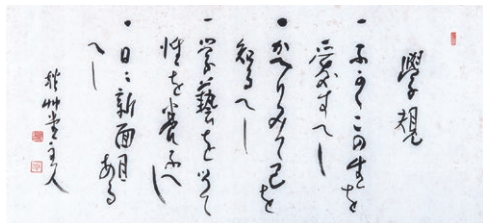 學規
一 ふかくこの生を
愛すべし
一 かへりみて己を
知るべし
一 学藝を以て
性を養ふべし
一 日々新面目
あるべし
秋艸堂主人